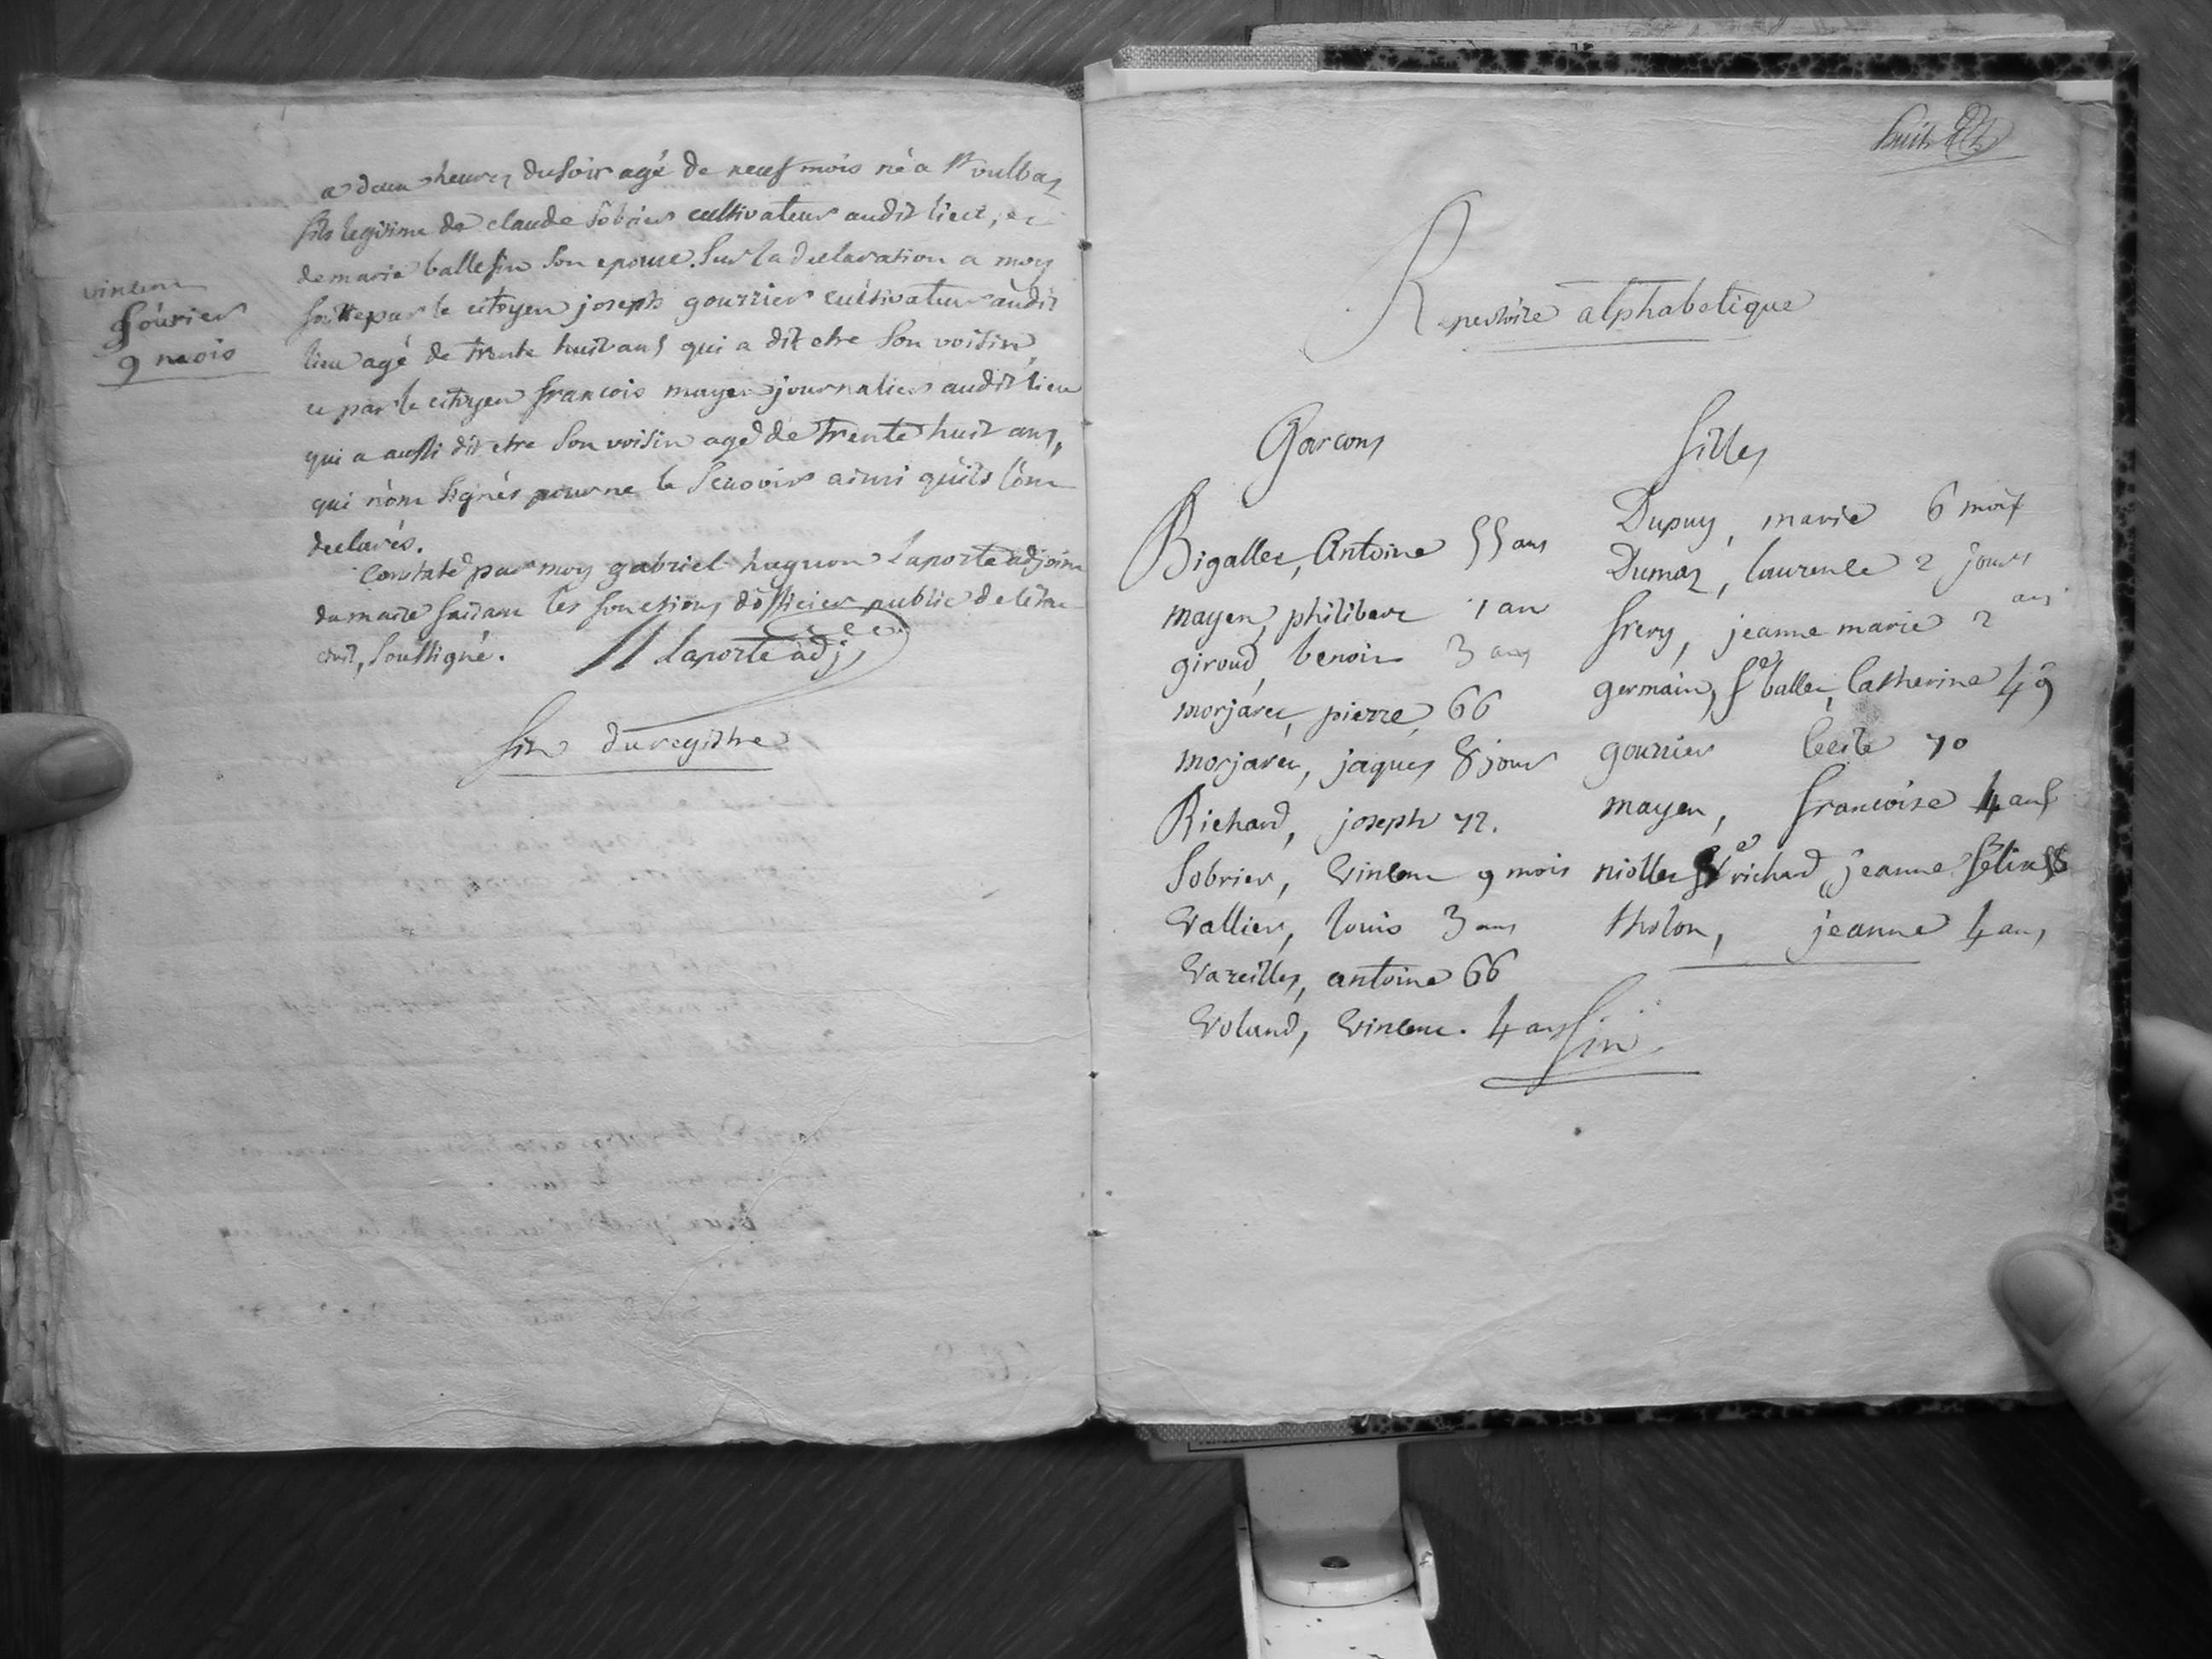 vincent
Sobrier
9 mois
a deux heures du soir agé de neuf mois né a St vulbas
fils legitime de claude Sobrier cultivateur audit lieu, et
de marie ballefin Son epouse. Sur la declaration a moy
faitte par le citoyen joseph gourrier cultivateur audit
lieu agé de trente huit ans qui a dit etre Son voisin,
et par le citoyen françois mayen journalier audit lieu
qui a aussi dit etre Son voisin agé de trente huit ans,
qui n'ont Signés pour ne le Scavoir ainsi qu'ils l'ont
declarés.
Constaté par moy gabriel hugon laporte adjoint
du maire faisant les fonctions d'officier public de letat
civil, Soussigné. laporte adj
fin du registre
huit
Repertoire alphabetique
Garcons
Bigallet, Antoine 55 ans
mayen, philibert 1 an
giroud, benoit 3 ans
morjaret, pierre, 66
morjaret, jaques 8 jours
Richard, joseph 72.
Sobrier, Vincent 9 mois
Vallier, louis 3 ans
Vareilles, antoine 66
Voland, Vincent. 4 ans
filles
Dupuy, marie 6 mois
Dumaz, laurence 2 jours
frery, jeanne marie 2 ans
germain, fe ballet, Catherine 49
gourrier Cecile 70
mayen, francoise 4 ans
niollet Ve richard, jeanne
tholon, jeanne 4 ans
fin